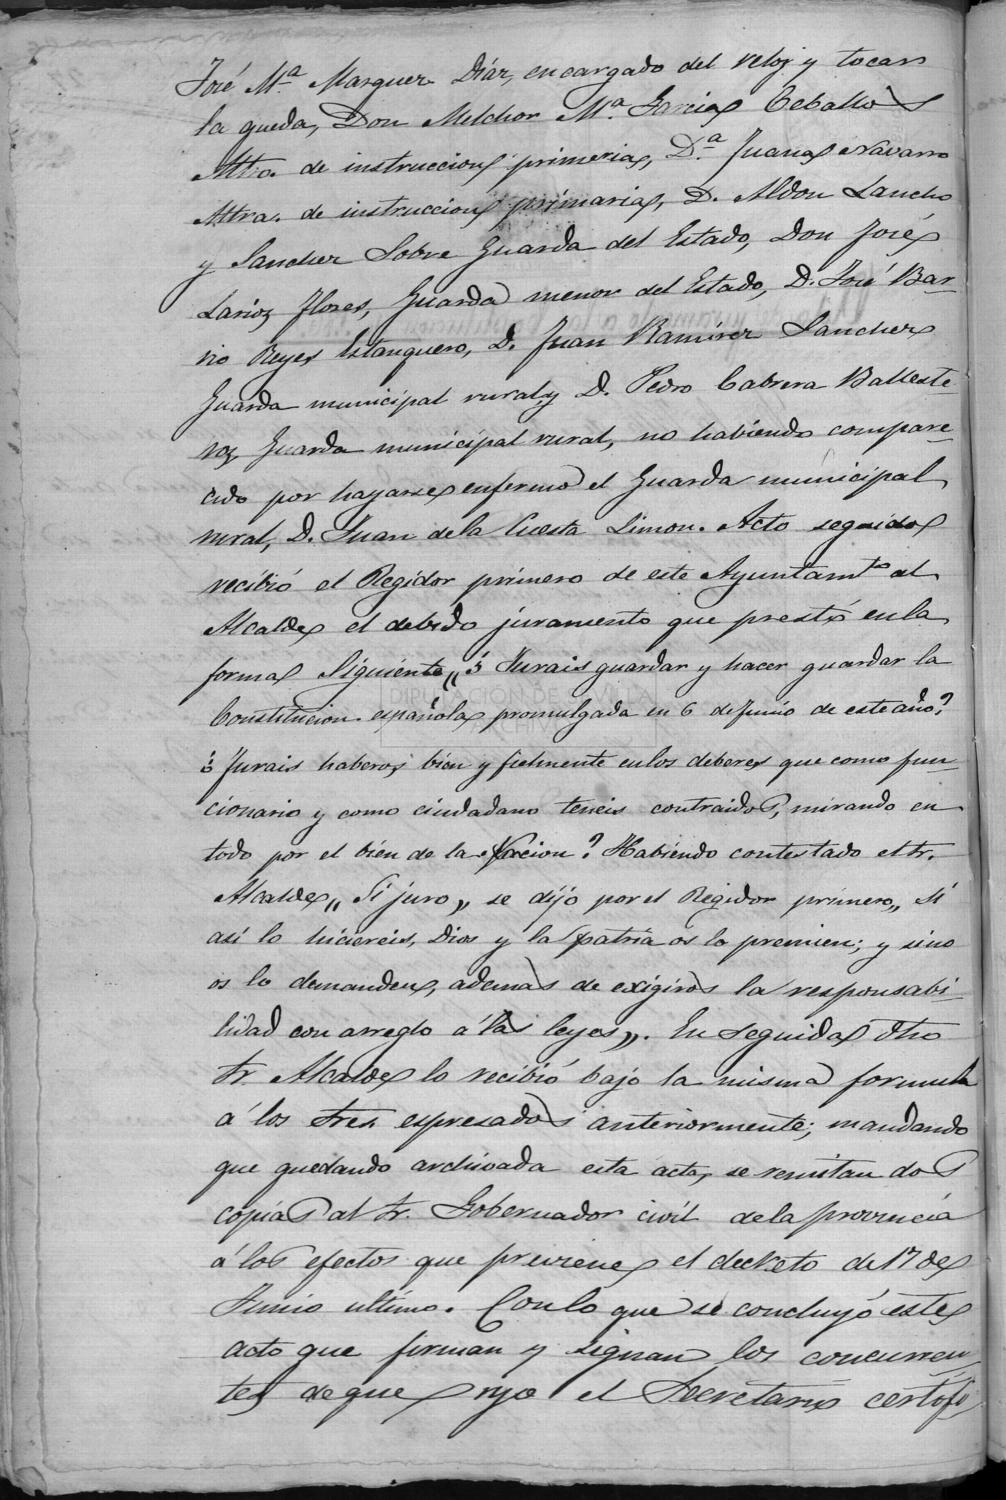 José Mª Marquez Diáz, encargado del reloj y tocar
la queda, Don Melchor Mª. Garcia Ceballos
Mtro. de instruccion primeria, D.ª Juana Navarro
Mtra. de instruccion primaria, D. Aldon Sancho
y Sanchez Sobre Guarda del Estado, Don José
Larios Flores, Guarda menor del Estado, D. José Bar-
rio Reyes Estanquero, D. Juan Ramirez Sanchez
Guarda municipal rural, y D. Pedro Cabrera Balleste-
ros, Guarda municipal rural, no habiendo compare-
cido por hayarse enfermo el Guarda municipal
rural, D. Juan dela Cuesta Limon. Acto seguido
recibió el Regidor primero de este Ayuntamto al
Alcalde el debido juramento que prestó enla
forma Siguiente „ ¿ Jurais guardar y hacer guardar la
DIPUTACIÓN DE SEVILLA
ARCHIVO
Constitucion española promulgada en 6 de Junio de este año?
¿ Jurais haberos bien y fielmente enlos deberes que como fun-
cionario y como ciudadano teneis contraidos, mirando en
todo por el bien de la Nacion? Habiendo contestado el Sr.
Alcalde „ Si juro „ se dijo por el Regidor primero „ Si
asi lo hiciereis, Dios y la patria os lo premien; y sino
os lo demanden, ademas de exigiros la responsabi-
lidad con arreglo á las leyes „. En seguida dho
Sr. Alcalde lo recibió bajo la misma formula
á los tres espresados anteriormente; mandando
que quedando archivada esta acta, se remitan dos
copias al Sr. Gobernador civil dela provincia
á los efectos que previene el decreto de 17 de
Junio ultimo. Con lo que se concluyó este
acto que firman y signan los concurren-
tes de que yo el Secretario certifi